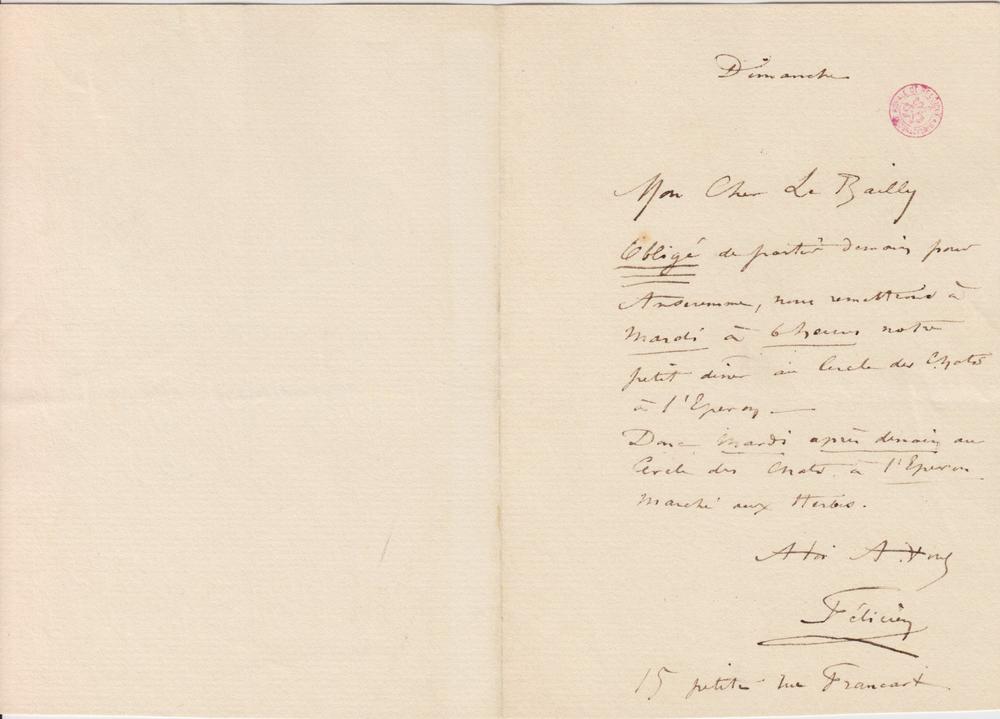 Dimanche
Mon Cher Le Bailly
Obligé de partir demain pour
Anseremme, nous remettrons à
Mardi à 6 heures notre
petit diner au Cercle des Chats
à l'Eperon –
Donc Mardi après demain au
Cercle des Chats à l'Eperon
Marché aux Herbes.
A toi A Vous
Félicien
15 petite rue Francart